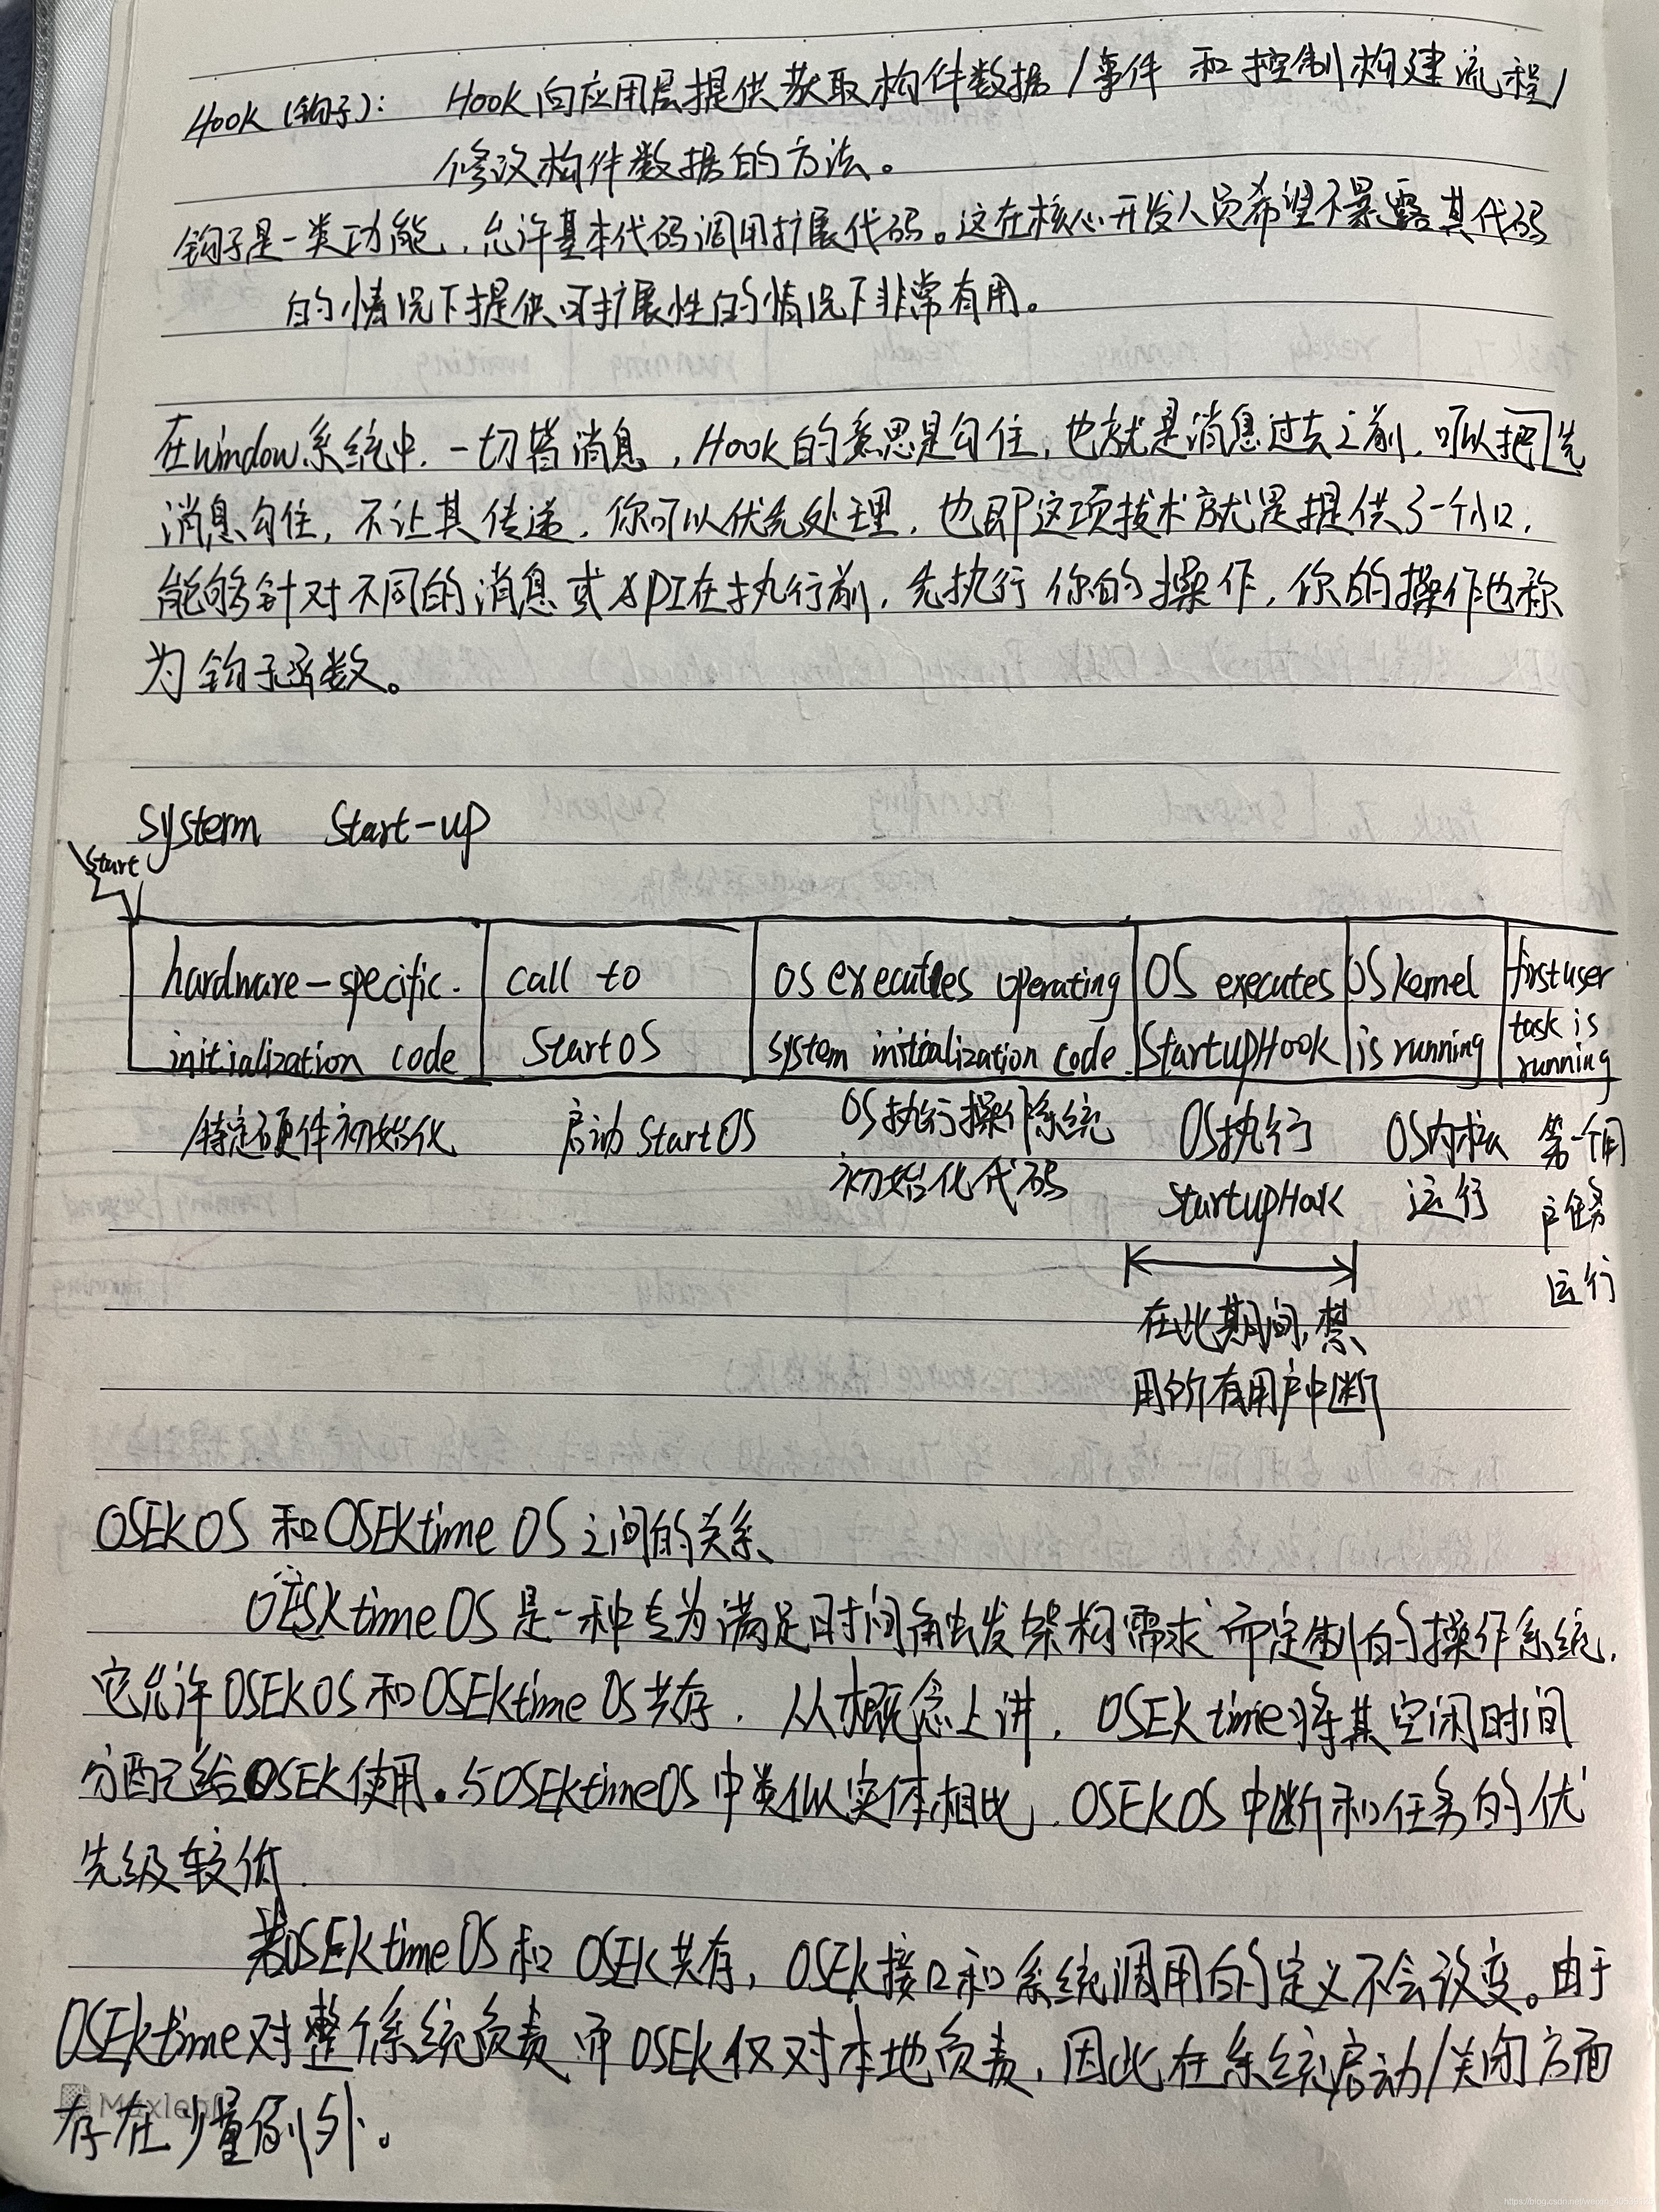 Hook (钩子): Hook 向应用层提供获取构件数据/事件 和 控制构建流程/
修改构件数据的方法。
钩子是一类功能,允许基本代码调用扩展代码。这在核心开发人员希望不暴露其代码
的情况下提供可扩展性的情况下非常有用。
在window系统中,一切皆消息,Hook的意思是勾住,也就是消息过去之前,可以把先
消息勾住,不让其传递,你可以优先处理,也即这项技术就是提供了一个入口,
能够针对不同的消息或API在执行前,先执行你的操作,你的操作也称
为钩子函数。
systerm Start-up
Start
hardware-specific. call to OS executes operating OS executes OS kernel first user
initialization code StartOS system initialization code StartupHook is running task is
running
特定硬件初始化 启动StartOS OS执行操作系统 OS执行 OS内核 第一个用
初始化代码 StartupHook 运行 户任务
运行
在此期间,禁
用所有用户中断
OSEK OS 和OSEKtime OS之间的关系、
OESKtime OS 是一种专为满足时间触发架构需求而定制的操作系统,
它允许OSEK OS和OSEKtime OS共存,从概念上讲,OSEK time将其空闲时间
分配给OSEK使用。与OSEKtimeOS中类似实体相比,OSEKOS中断和任务的优
先级较低.
若OSEKtime OS和OSEK共存,OSEK接口和系统调用的定义不会改变。由于
OSEKtime对整个系统负责而OSEK仅对本地负责,因此在系统启动/关闭方面
存在少量例外。
Maxleaf